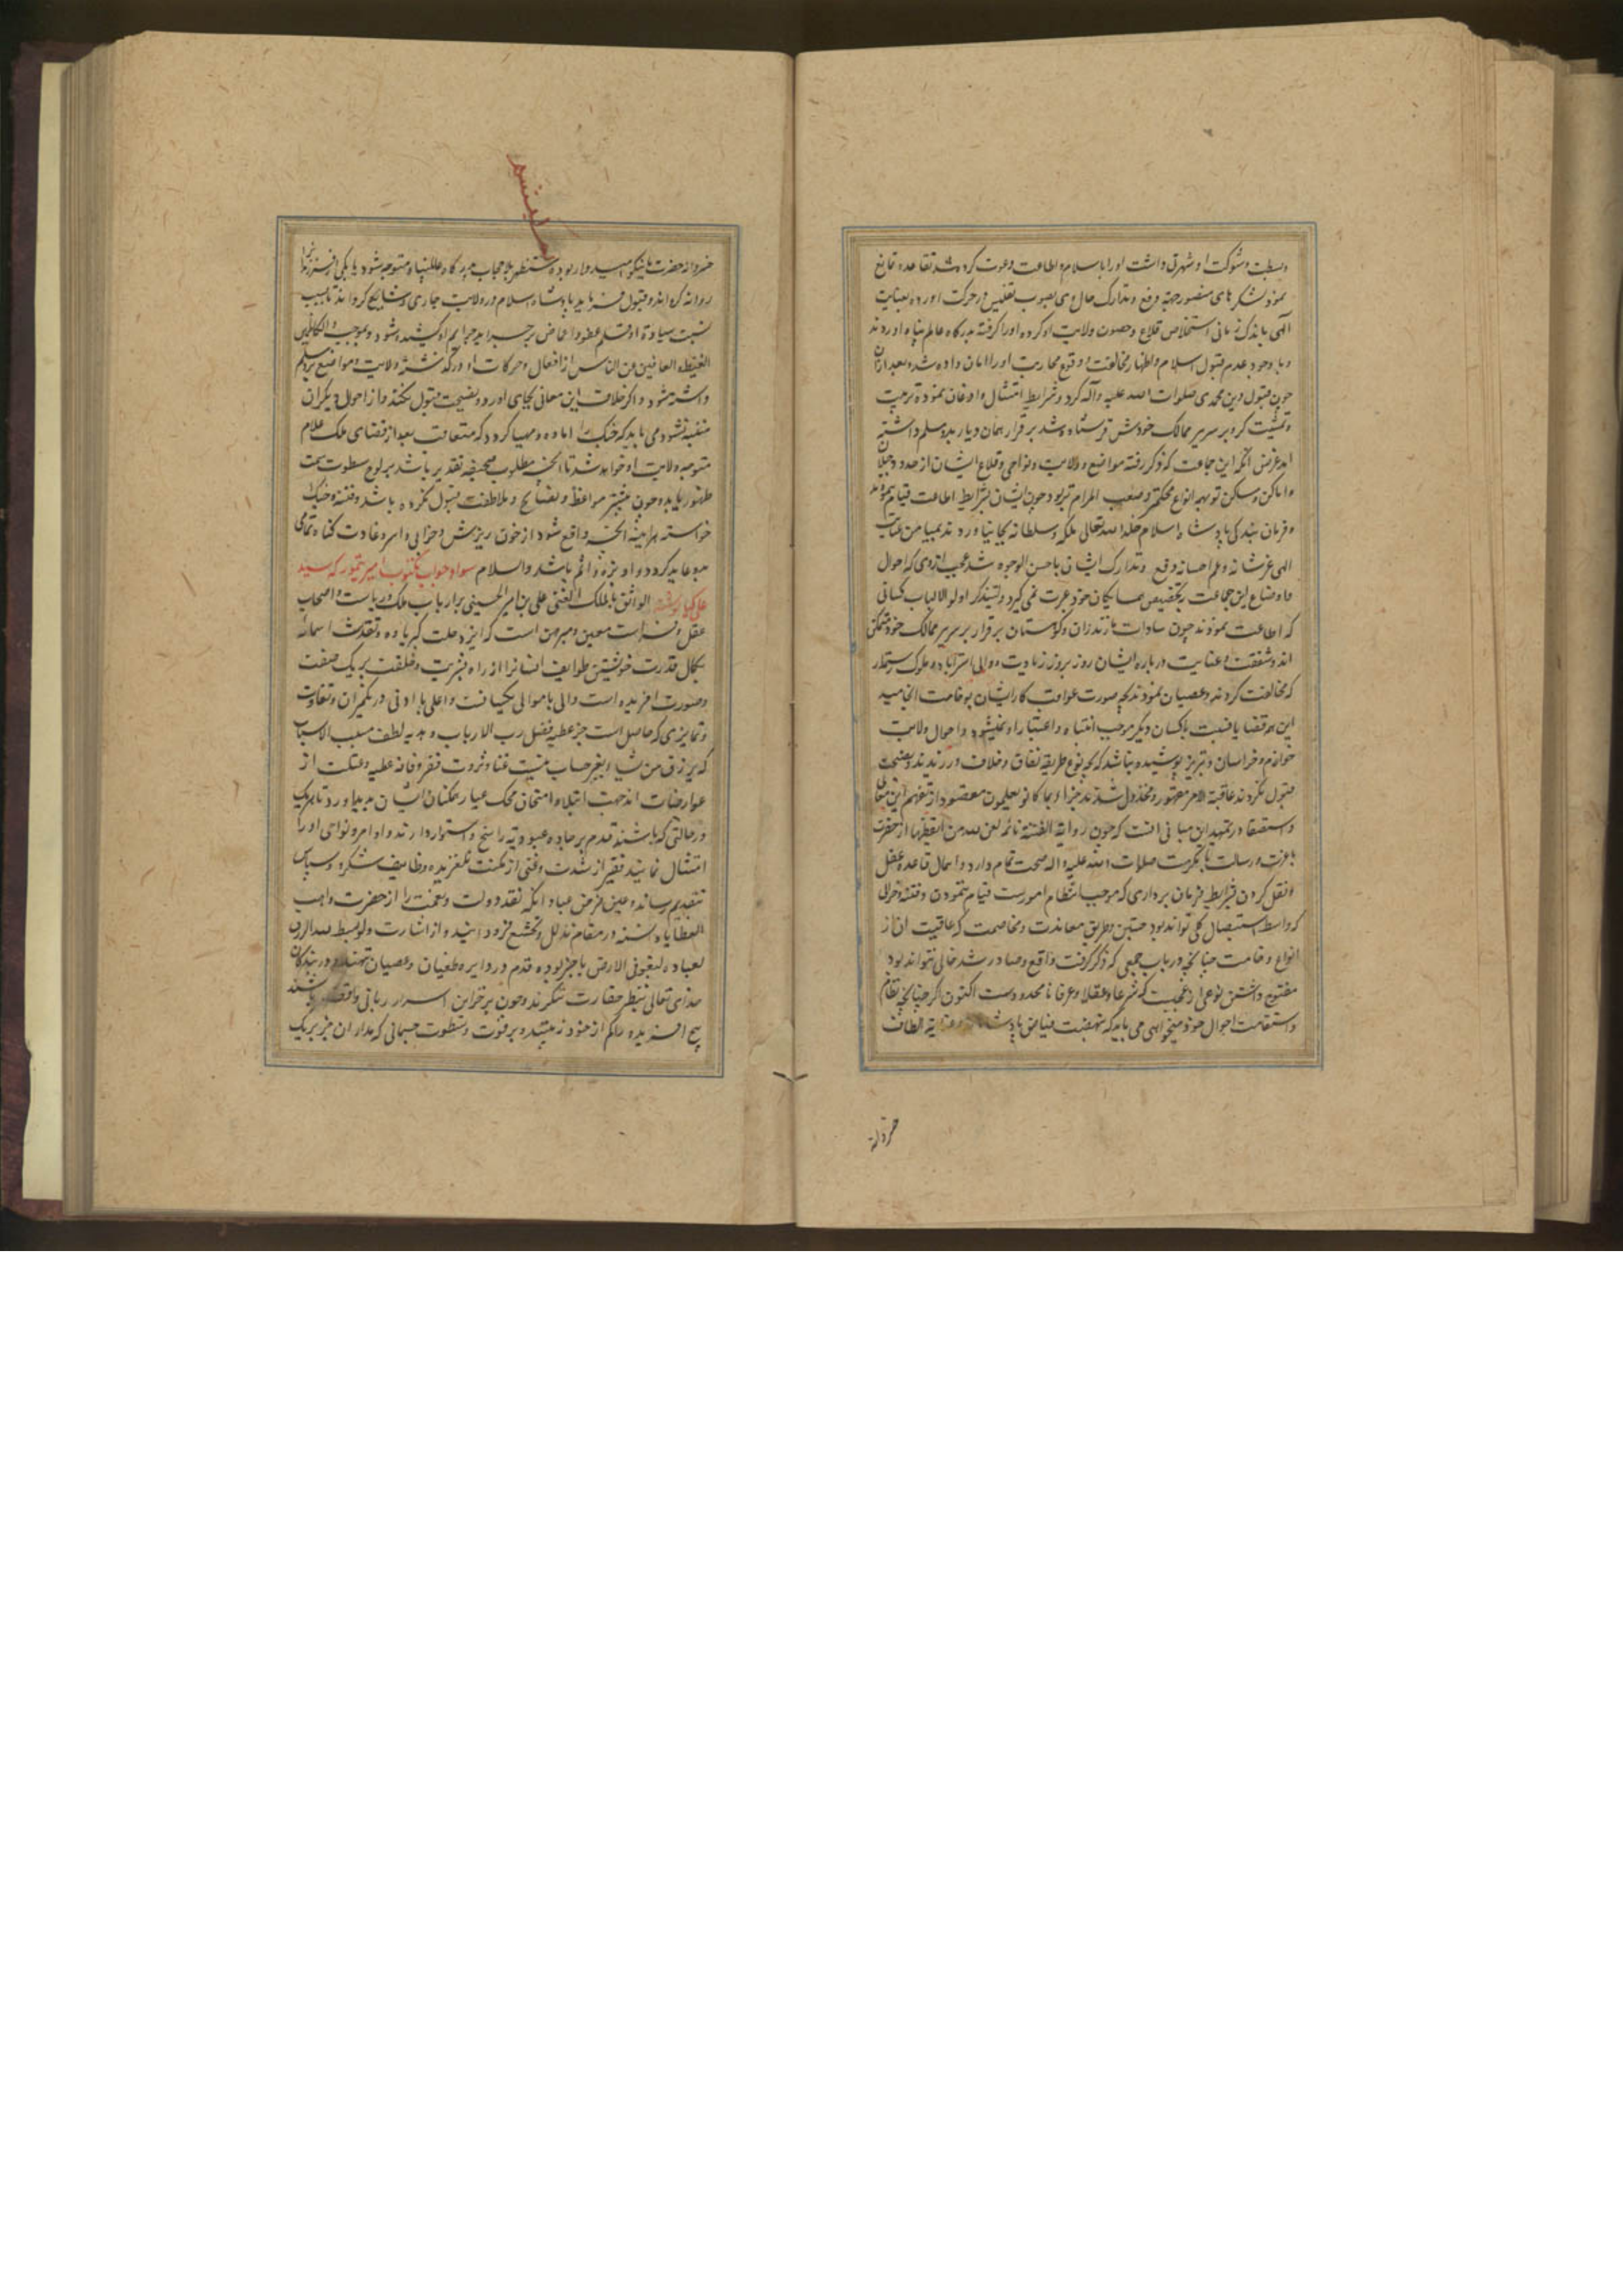 و سطبت و شوکت او شهرتی داشت او را باسلام و اطاعت دعوت کرده شد تقاعد و تمانع
نمود لشکرهای منصور جهة دفع و تدارک حال وی بصوب تفلیس در حرکت آورده بعنایت
الهی باندک زمانی استخلاص قلاع و حصون ولایت او کرده او را گرفته بدرگاه عالم پناه آوردند
و با وجود عدم قبول اسلام و اظهار مخالفت و وقوع محاربت او را امان داده شد و بعد از آن
چون قبول دین محمدی صلوات الله علیه و آله کرد و شرایط امتثال و اذعان نمود تربیت
و تمشیت کرده بر سریر ممالک خودش فرستاده شد برقرار همان دیار بدو مسلم داشته
اید غرض آنکه این جماعت که ذکر رفته مواضع و ولایت و نواحی و قلاع ایشان از حدود جیلان
و اماکن و مسکن تو بهمه انواع محکمتر و صعب المرام تر بود چون ایشان بشرایط اطاعت قیام ننمودند
و فرمان بندگی پادشاه اسلام خلد الله تعالی ملکه و سلطانه بجا نیاوردند بمیامن عنایت
الهی عز شانه و عم احسانه دفع و تدارک ایشان باحسن الوجوه شد عجب از وی که احوال
و اوضاع این جماعت بتخصیص همسایگان خود عبرت نمی گیرد و لیتذکر اولو الالباب کسانی
که اطاعت نمودند چون سادات مازندران و کوهستان برقرار بر سریر ممالک خود متمکن
اند و شفقت و عنایت درباره ایشان روز بروز زیادت و والی استراباد و ملوک رستمدار
که مخالفت کردند و عصیان نمودند بچه صورت عواقب کار ایشان بوخامت انجامید
این هر قضایا نسبت با کسان دیگر موجب انتباه و اعتبار او نمیشود و احوال ولایت
خوارزم و خراسان و تبریز پوشیده نباشد که بچه نوع طریقه نفاق و خلاف ورزیدند و نصیحت
قبول نکردند عاقبة الامر مقهور و مخذول شدند جزاء بما کانوا یعلمون مقصود از تفهیم این معانی
و استصفا در تمهید این مبانی آنست که چون روایة الفتنة نائمة لعن الله من ایقظها از حضرت
با عزت و رسالت با مکرمت صلوات الله علیه و اله صحت تمام دارد و اهمال قاعده عقل
و نقل کردن بشرایط فرمان برداری که موجب انتظام امورست قیام ننمودن و فتنه و خرابی
که واسطه استیصال کلی تواند بود جستن و طریق معاندت و مخاصمت که عاقبت آن از
انواع وخامت چنانچه در باب جمعی که ذکر گرفت واقع و صادر شد خالی نتواند بود
مفتوح داشتن نوعی از عجبیت که شرعا و عقلا و عرفا نامحدودست اکنون اگر چنانچه نظام
و استقامت احوال خود میخواهی می باید که بتهضت فیاض پادشاهانه و عنایة الطاف
خسروانه
خسروانه حضرت ما نیکو امیدوار بوده مستظهر بلا حجاب بدرگاه عالم پناه متوجه شود یا یکی از فرزندان را
روانه گرداند و قبول فرماید پادشاه اسلام در ولایت جاری و شایع گرداند تا بسبب
نسبت سیادة او قلم عفو و اغماض بر جرایم او کشیده شود و بموجب و الکاظمین
الغیظ و العافین عن الناس از افعال و حرکات او درگذشته ولایت و مواضع برو مسلم
داشته شود و اگر خلاف این معانی بجای آورد و نصیحت قبول نکند و از احوال دیگران
متنبه نشود می باید که جنگ را آماده و مهیا گردد که متعاقب بعد از قضای ملک علام
متوجه ولایت او خواهد شد تا آنچه مطلوب صحیفه تقدیر باشد بر لوح سطوت سمت
ظهور یابد و چون بیشتر مواعظ و نصایح و ملاطفت قبول نکرده باشد و فتنه و جنگ
خواسته هر اینه آنچه واقع شود از خون ریزش و خرابی و اسر و غارت گناه تمامی
بدو عاید گردد و او بزه و آثم باشد و السلام سواد جواب مکتوب امیر تیمور که سید
علی کیا نوشته الواثق بالملک الغنی علی بن امیر الحسینی بر ارباب ملک و ریاست و اصحاب
عقل و فراست معین و مبرهن است که ایزد جلت کبریاؤه و تقدست اسمائه
بکمال قدرت خویشتن طوایف انسانرا از راه بشریت و خلقت بر یک صفت
و صورت افریده است و الی با موالی یکیسانست و اعلی با ادنی در یک میزان و تفاوت
و تمایزی که حاصل است جز عطیه فضل رب الارباب و هدیه لطف مسبب الاسباب
که یرزق من یشاء بغیر حساب نیست غنا و ثروت فقر و فاقه عطیه و مسکنت از
عوارضات اند جهت ابتلا و امتحان محک عیار ممکنات ایشان پدید آورد تا هر یک
در حالتی که باشند قدم بر جاده عبودیة راسخ و استوار دارند و اوامر و نواهی او را
امتثال نمایند فقیر از شدت و غنی از مکنت نلغزیده وظایف شکر و سپاس
بتقدیم رساند و عین فرض عباد آنکه نقد دولت و نعمت را از حضرت واهب
العطایا دانسته در مقام تذلل و تخشع فزود آیند و از اشارت ولو بسط الله الرزق
لعباده لبغوا فی الارض باخبر بوده قدم در دایره طغیان و عصیان ننهند و در بندگان
خدای تعالی بنظر حقارت ننگرند و چون بر خزاین اسرار ربانی واقف باشند
هیچ آفریده را کم از خود نه بینند و بر قوت و سطوت جسمانی که مدار آن جز بر یک